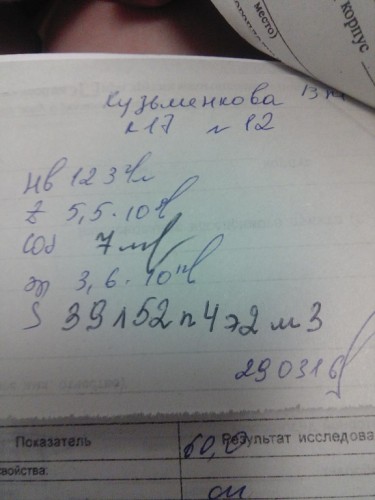 место)
корпус
Кузьменкова
к 17 п 12
Нв 123 г/л
L 5,5·10 9/л
СОЭ 7 мм/ч
эр 3,6·10 12/л
S 39 л 52 п 4 э 2 м 3
290316
Показатель
Результат исследова
свойства: